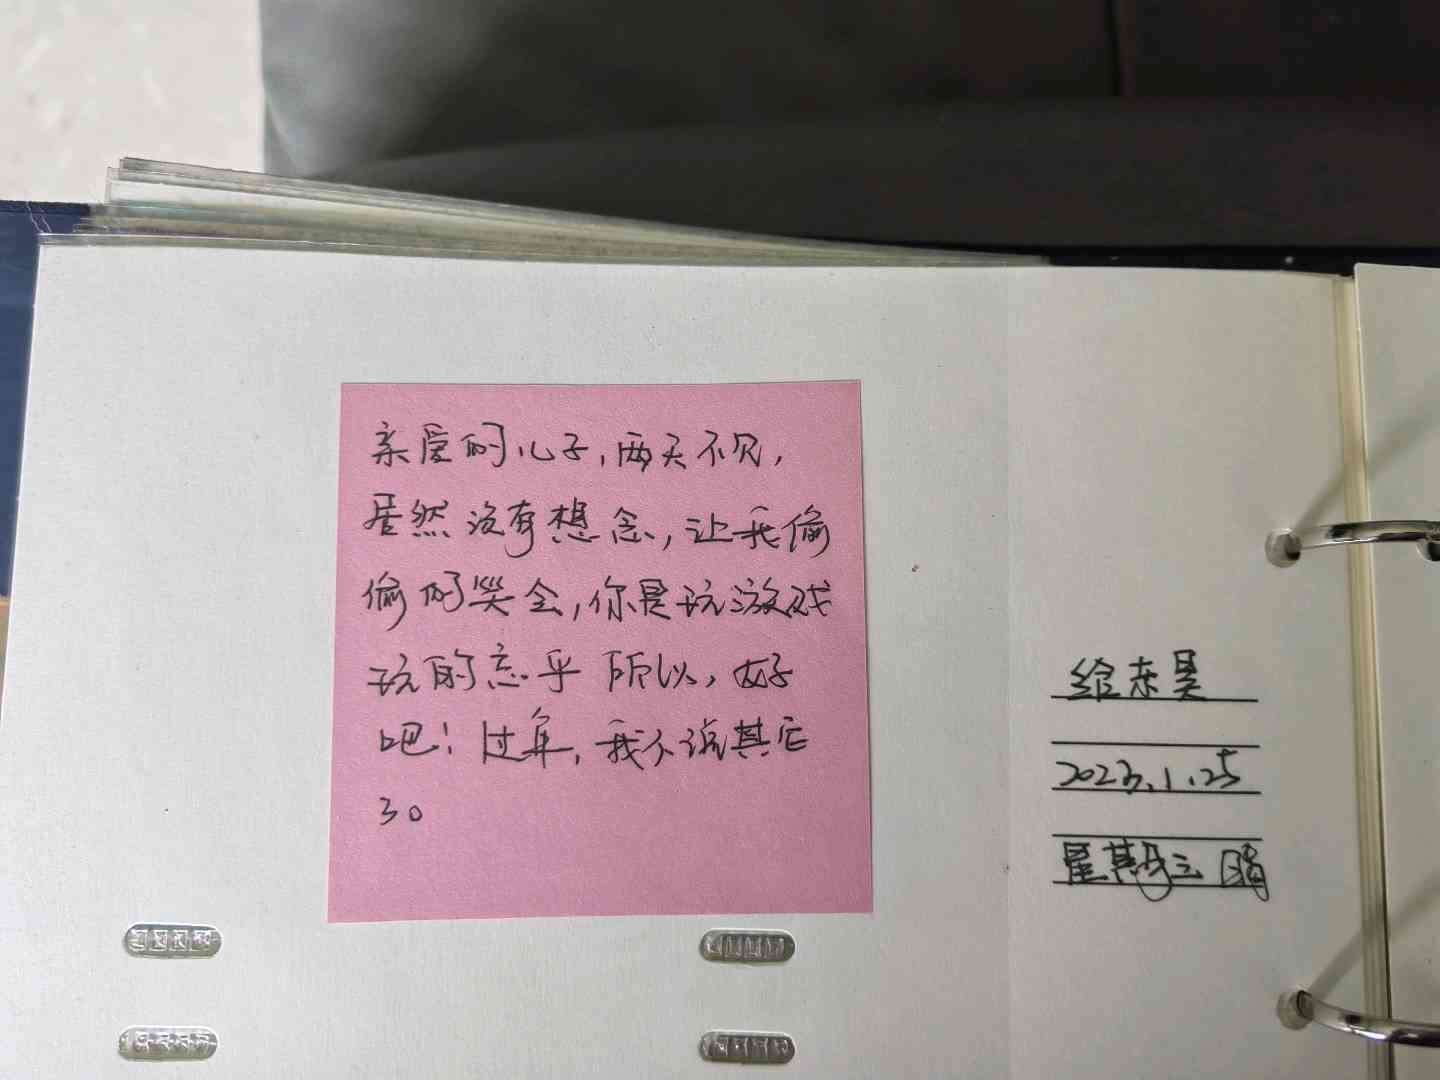 亲爱的儿子,两天不见,
居然没有想念,让我偷
偷的哭会,你是玩游戏
玩的忘乎所以,好
吧!过年,我不说其它
了。
给东昊
2023.1.25
星期三 晴